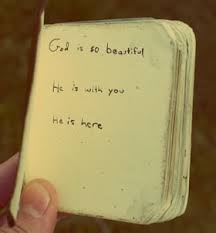 God is so beautiful
He is with you
He is here